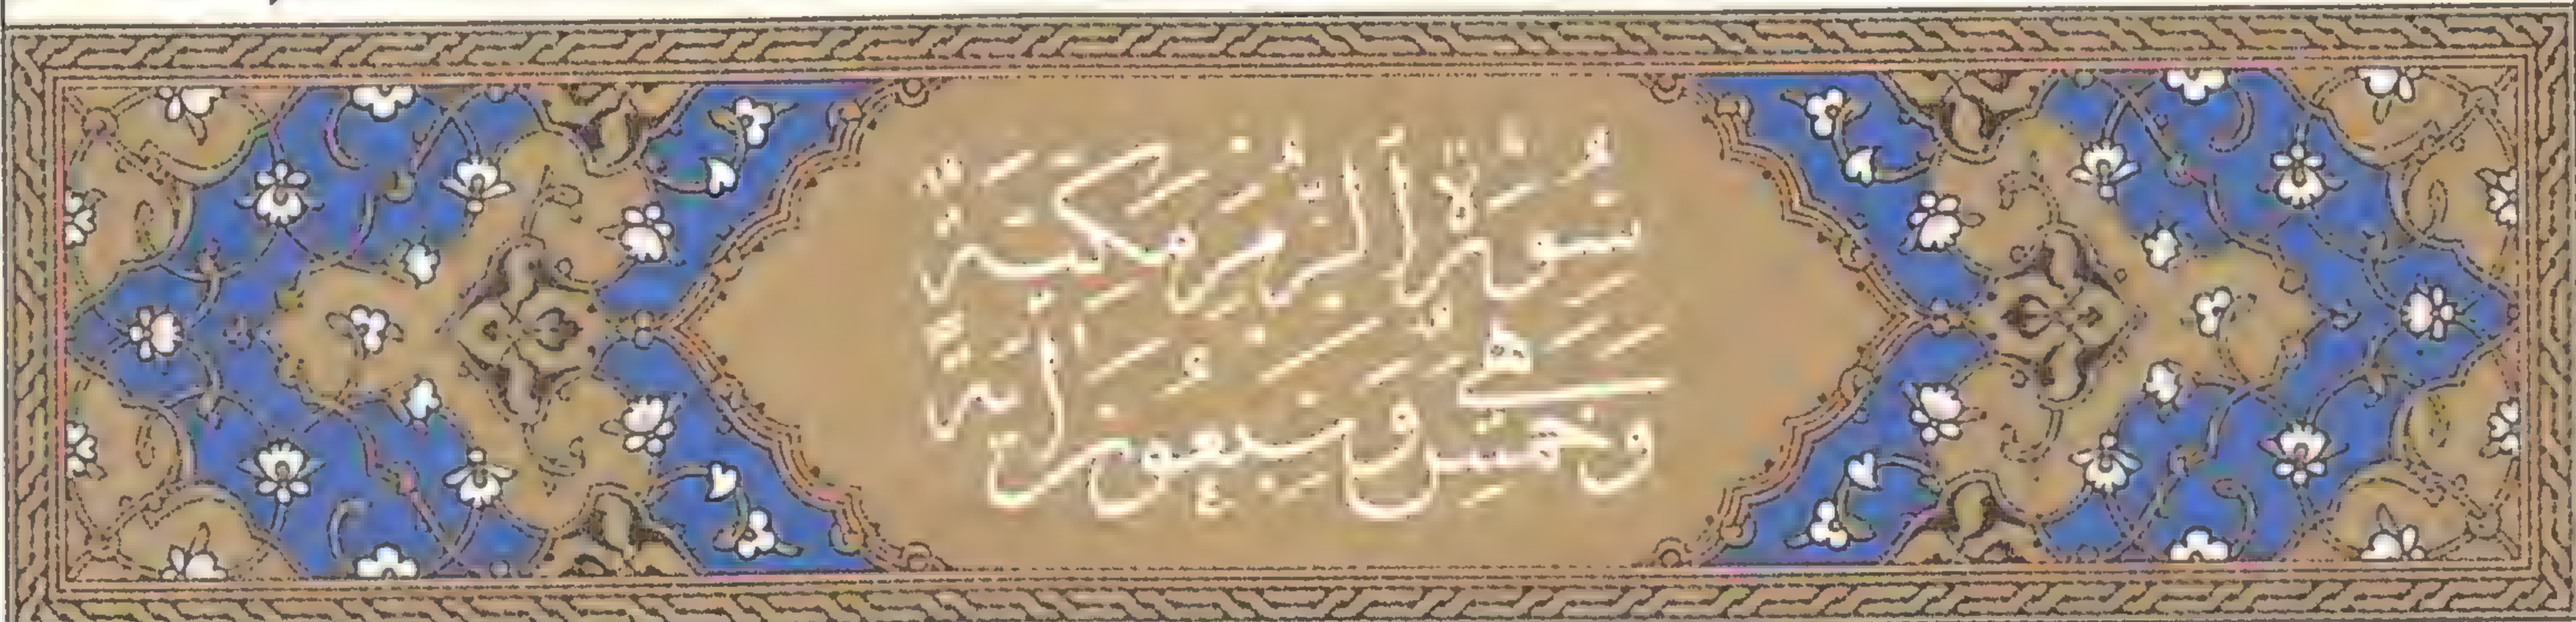 سُورَةُ ٱلزُّمَرِ مَكِّيَّةٌ
وَهِيَ خَمْسٌ وَسَبْعُونَ آيَةً